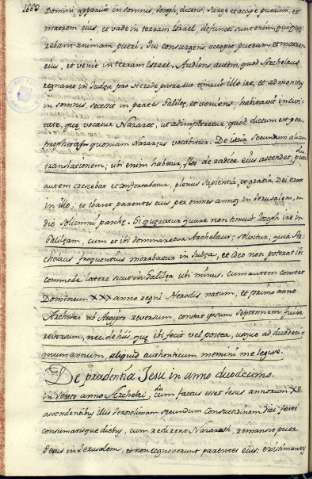 Domini apparuit in somnis Ioseph, dicens, surge et accipe puerum, et
matrem eius, et vade in terram Israel, defuncti sunt enim qui quæ
rebant animam pueri. Qui consurgens accepit puerum et matrem
eius, et venit in terram Israel. Audiens autem quod Archelaus
regnaret in Iudæa pro Herode patre suo timuit illo ire, et admonitus
in somnis, secessit in partes Galileæ, et veniens habitavit in civi
tate, quæ vocatur Nazaret, ut adimpleretur quod dictum est per
prophetas quoniam Nazaræus vocabitur. secundum aliam
translationem, ubi enim habetur, flos de radice eius ascendet,
autem crescebat et confortabatur, plenus sapientia, et gratia Dei erat
in illo, et ibant parentes eius per omnes annos in Ierusalem, in
die solemni paschæ. Si quæratur quare non timuit Ioseph ire in
Galilæam, cum et ibi dominaretur Archelaus; solutio, quia Ar
chelaus frequentius morabatur in Iudæa, et Deo non poterat
commode latere sicut in Galilea ubi minus. cum autem constet
Dominum XXX anno regni Herodis natum, et primo anno
Archelai ex Ægypto reversum, constat ipsum septennem fuisse
reversum, nec de his quæ ibi fecit vel postea, usque ad duode
cimum annum, aliquid authenticum memini me legisse.
De prudentia Iesu in anno duodecimo.
anno Archelai, cum factus esset Iesus annorum XII
ascendentibus illis Ierosolimam secundum consuetudinem diei festi
consumatisque diebus, cum redirent Nazareth remansit puer
Iesus in Ierusalem, et non cognoverunt parentes eius, existimantes